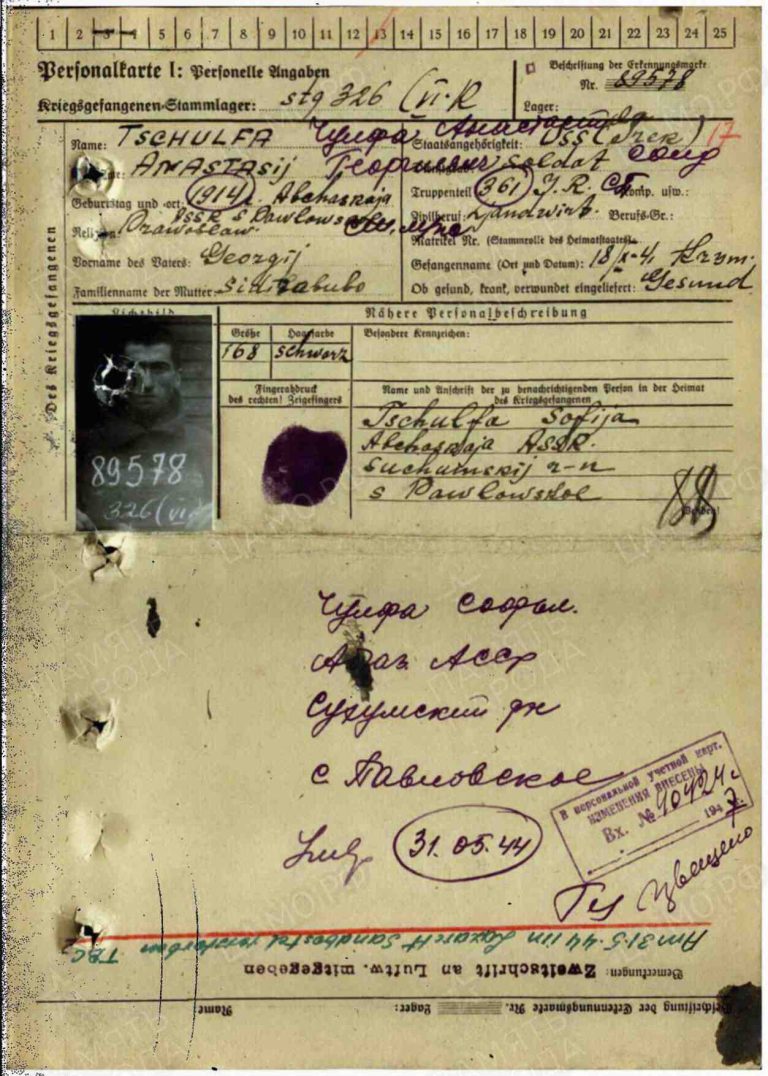 1 2 3 4 5 6 7 8 9 10 11 12 13 14 15 16 17 18 19 20 21 22 23 24 25
Personalkarte I: Personelle Angaben
Beschriftung der Erkennungsmarke
Nr. 89578
Kriegsgefangenen-Stammlager: Stg 326 (VI-K
Lager:
Des Kriegsgefangenen
Name: TSCHULFA Чулфа Анастасий
Staatsangehörigkeit:
ANASTASIJ Георгиевич
Soldat солд
Geburtstag und -ort: 1914 Abchaskaja
Truppenteil 361 J.R. Komp. usw.:
ASSR s Pawlowskoe
Zivilberuf: Landwirt Berufs-Gr.:
Religion: Prawoslaw.
Matrikel Nr. (Stammrolle des Heimatstaates)
Vorname des Vaters: Georgij
Gefangennahme (Ort und Datum): Krym.
Familienname der Mutter:
Ob gesund, krank, verwundet eingeliefert: Gesund
Lichtbild
Nähere Personalbeschreibung
Größe Haarfarbe Besondere Kennzeichen:
168 schwarz
Fingerabdruck
des rechten! Zeigefingers
Name und Anschrift der zu benachrichtigenden Person in der Heimat
des Kriegsgefangenen
Tschulfa Sofija
Abchaskaja ASSR.
Suchumskij r-n
s Pawlowskoe
89578
326 (VI
Чулфа Софья.
Абхаз АССР
Сухумский рн
с Павловское
31.05.44
В персональной учетной карт.
ИЗМЕНЕНИЯ ВНЕСЕНЫ
Вх. № 90424с
1947
Am 31.5.44 im Lazarett Sandbostel verstorben TBC
Bemerkungen: Zweitschrift an Luftw. mitgegeben
Beschriftung der Erkennungsmarke Nr. Lager: Name